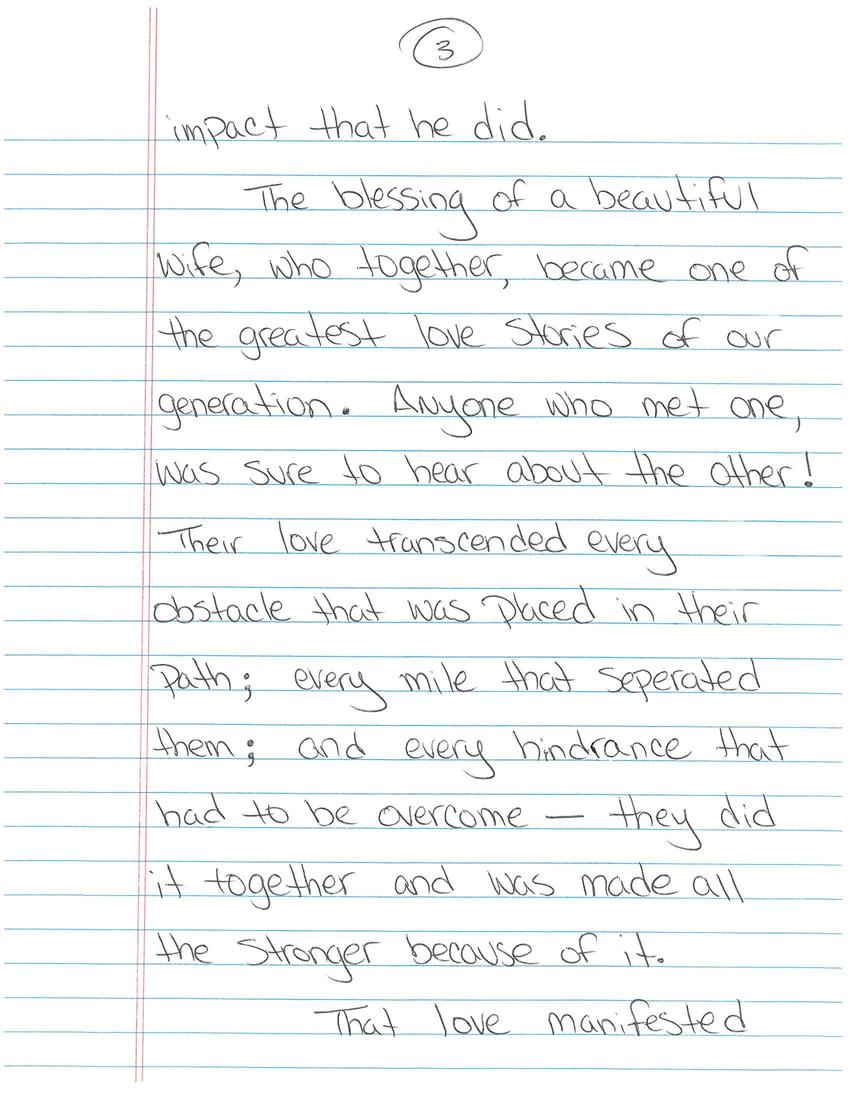 3
impact that he did.
The blessing of a beautiful
wife, who together, became one of
the greatest love stories of our
generation. Anyone who met one,
was sure to hear about the other!
Their love transcended every
obstacle that was placed in their
path; every mile that seperated
them; and every hindrance that
had to be overcome — they did
it together and was made all
the stronger because of it.
That love manifested